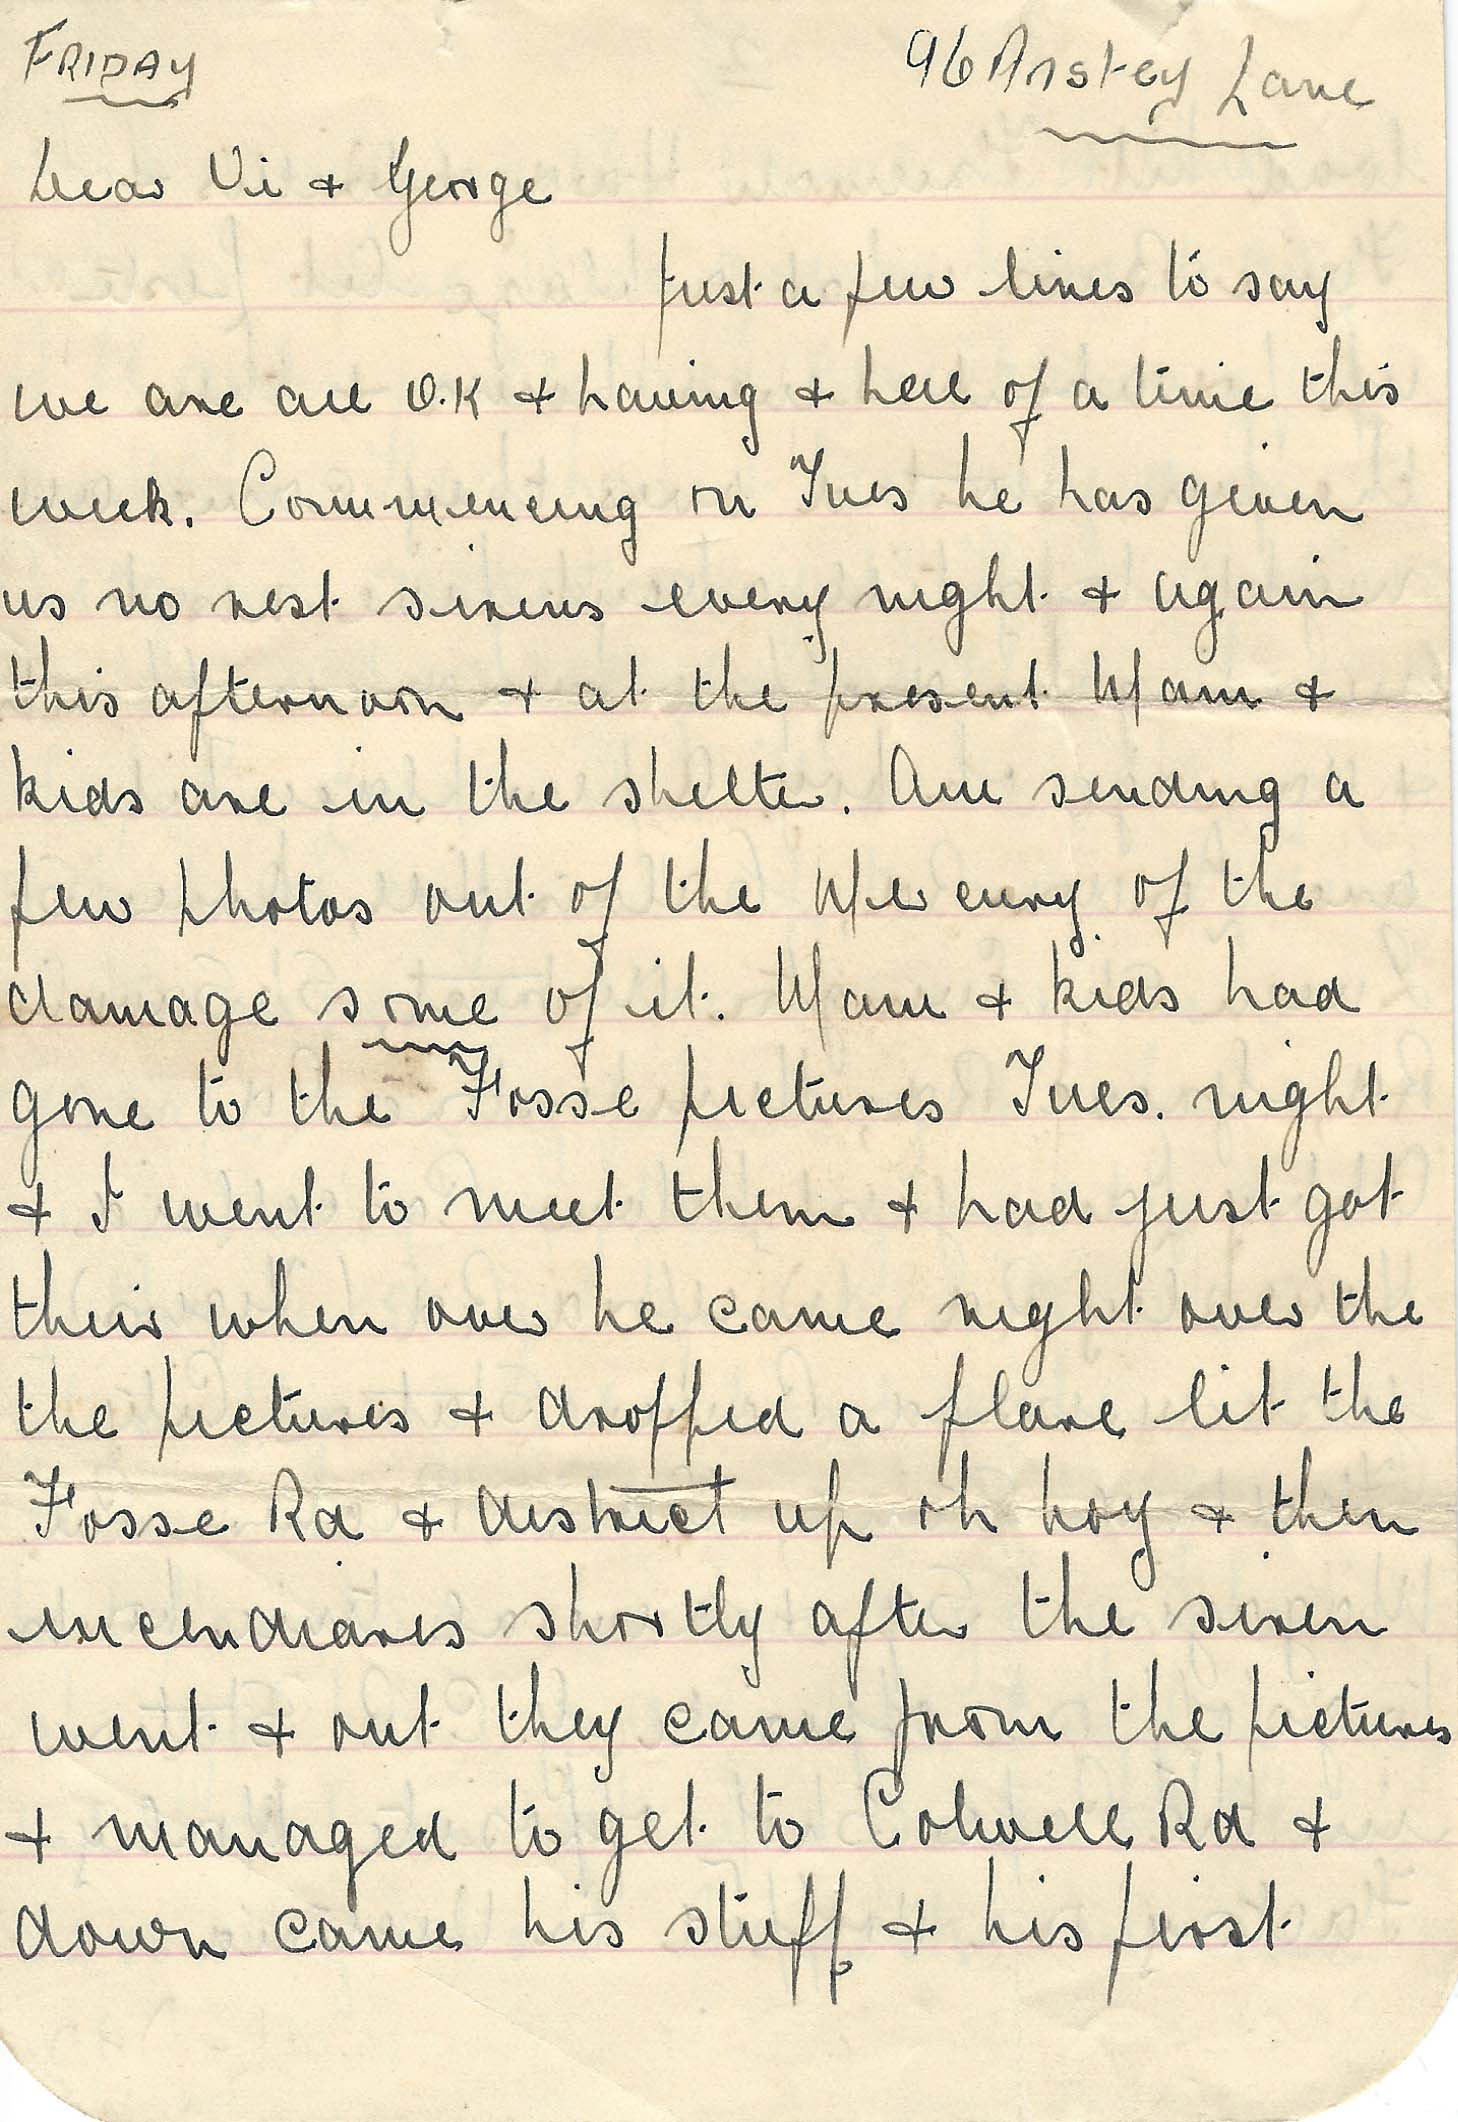 FRIDAY
96 Anstey Lane
Dear Vi & George
Just a few lines to say
we are all O.K & having & hell of a time this
week. Commencing on Tues he has given
us no rest sirens every night & again
this afternoon & at the present Mam &
kids are in the shelter. Am sending a
few photos out of the Mercury of the
damage some of it. Mam & kids had
gone to the Fosse pictures Tues. night
& I went to meet them & had just got
their when over he came right over the
the pictures & dropped a flare lit the
Fosse Rd & district up oh boy & then
incendiares shortly after the siren
went & out they came from the pictures
& managed to get to Colwell Rd &
down came his stuff & his first